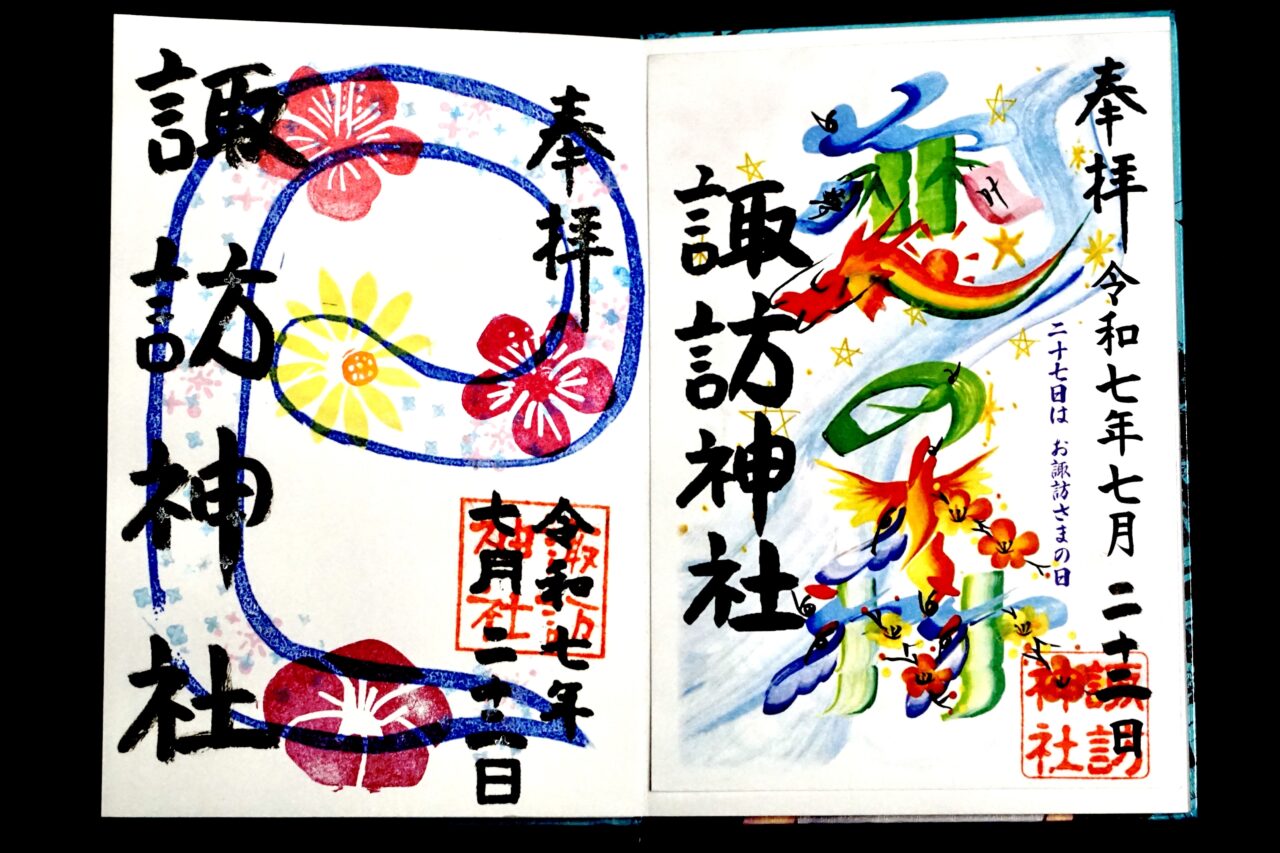 奉拝 令和七年七月二十二日
二十七日は お諏訪さまの日
恋の
叶
諏訪神社
諏訪
神社
奉拝
令和七年
七月二十二日
諏訪
神社
諏訪神社